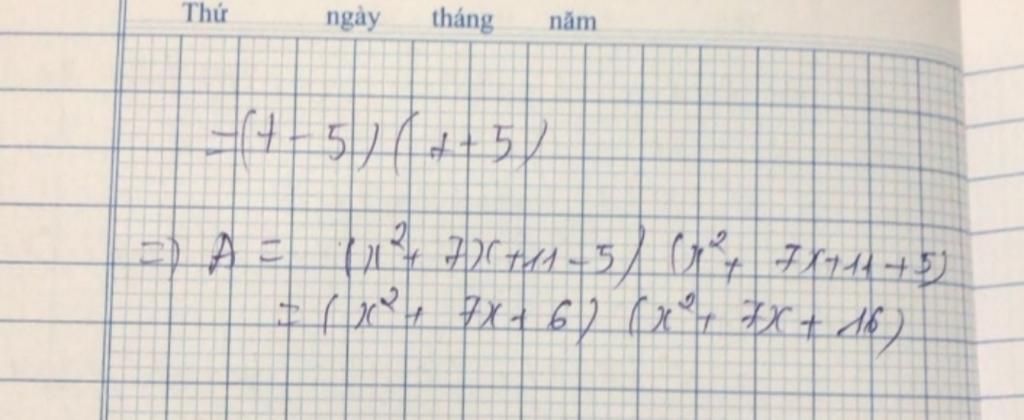 Thứ ngày tháng năm
=(t-5)(t+5)
=) A = (x²+ 7x+11-5) (x²+ 7x+11+5)
= (x²+ 7x+6) (x²+ 7x+ 16)